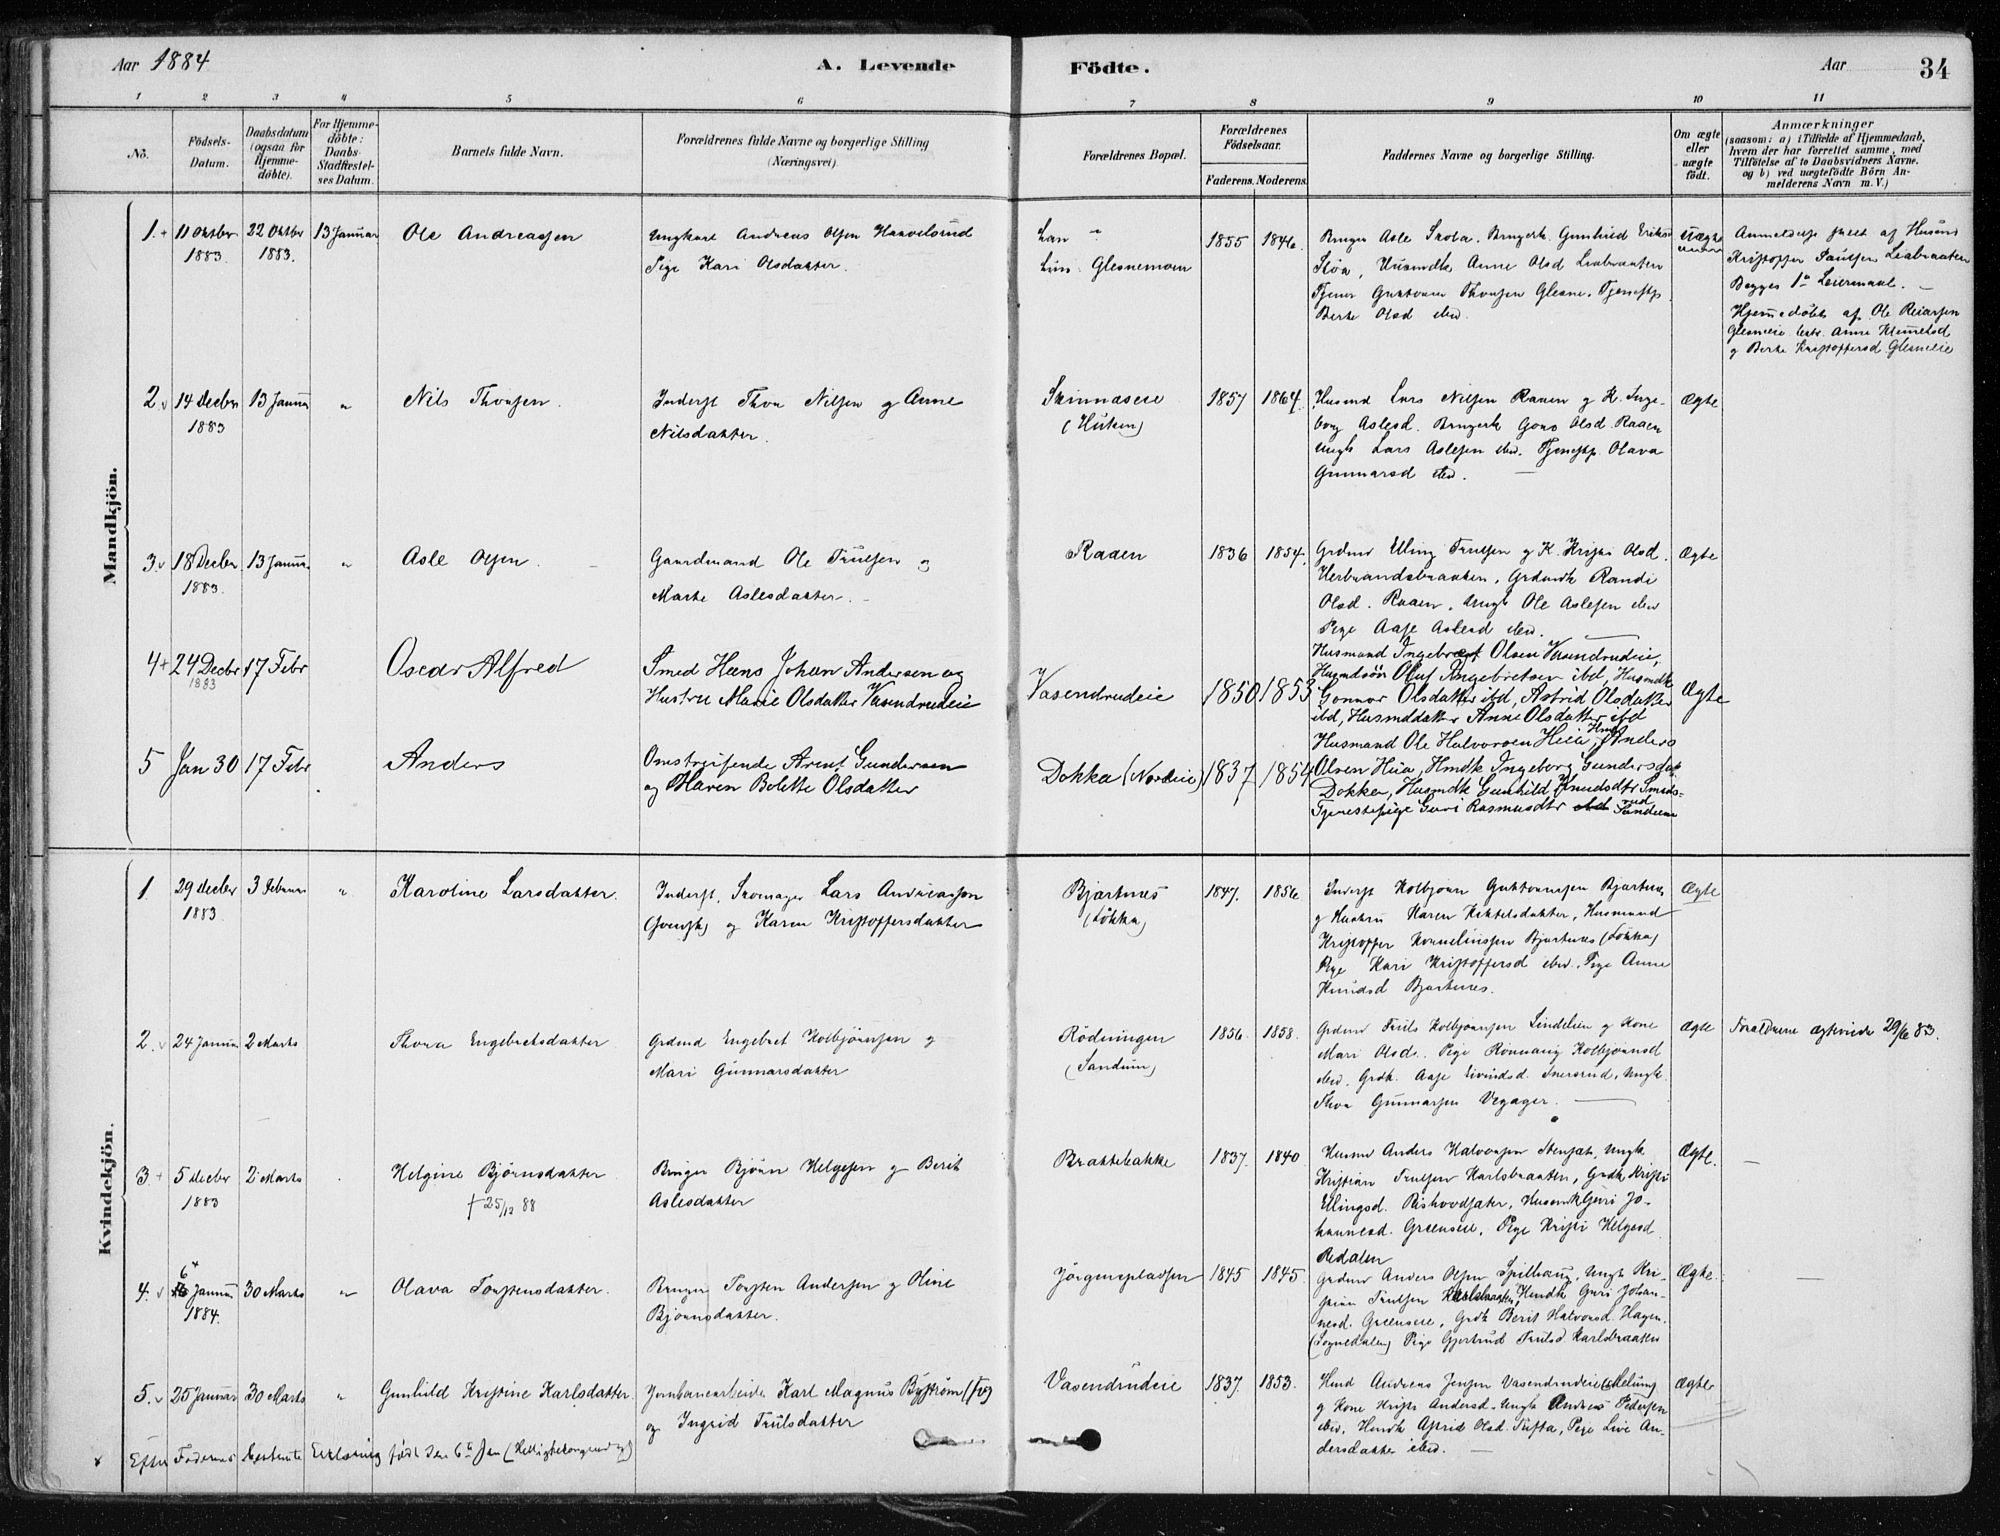 Aar 1884
A. Levende Födte.
Aar
34
1 2 3 4 5 6 7 8 9 10 11
No.
Födsels-Datum.
Daabsdatum (ogsaa for Hjemme-döbte).
For Hjemme-döbte: Daabs-Stadfæstel-ses Datum.
Barnets fulde Navn.
Forældrenes fulde Navne og borgerlige Stilling (Næringsvei).
Forældrenes Bopæl.
Forældrenes Födselsaar.
Faderens. Moderens.
Faddernes Navne og borgerlige Stilling.
Om ægte eller uægte født.
Anmærkninger
(saasom: a) i Tilfælde af Hjemmedaab,
hvem der har forrettet samme, med
Tilføielse af to Daabsvidners Navne.
og b) ved uægtefödte Börn An-
melderens Navn m. V.)
Mandkjön.
1. + 11 Oktbr 22 Oktbr 13 Januar Ole Andreassen Ungkarl Andreas Olsen Haavelsrud
1883 1883. Pige Kari Olsdatter.
Glesnemoen 1855 1846. Uægte
Bruger Asle Skola. Brugerk. Gunhild Eriksd
Anne Olsd Liabraaten
Glesne. Tjenestp.
Berte Olsd ibid.
Anmeldelse skeet af Husmd
Kristoffer Paulsen Liabraaten
Begges 1ste Leiermaal. —
Hjemmedøbt af Ole Reiarsen
Glesneeie
og Berte Kristoffersd Glesneeie
2. v 14 Decbr 13 Januar " Nils Thorsen. Inderst Thor Nilsen og Anne
1883 Nilsdatter.
Skinnaseie 1857 1864. Ægte
(Huken)
Husmd Lars Nilsen Raaen og K. Inge-
borg Aslesd. Brugerk Olsd. Raaen
Ungk Lars Aslesen ibid. Tjenestp. Olava
Gunnarsd ibid. —
3. v 18 Decbr 13 Januar " Asle Olsen. Gaardmand Ole Trulsen og
1883. Marte Aslesdatter. —
Raaen 1836 1854. Ægte
Grdmd Elling Trulsen og K. Kristi Olsd.
Herbrandsbraaten. Grdmdk Randi
Olsd. Raaen. Ungk Ole Aslesen ibid
Pige Aase Aslesd ibid.
4 + 24 Decbr 17 Febr Oscar Alfred Smed Hans Johan Andersen og
1883 Hustru Marie Olsdatter Vasendrudeie
Vasendrudeie 1850 1853 Ægte
Husmand Ingebregt Olsen Vasendrudeie,
Husmdsön Oluf Ingebretsen ibd, Husmdk
Gonnor Olsdatter ibd, Astrid Olsdatter
ibd, Husmddatter Anne Olsdatter ibd
5 Jan 30 17 Febr Anders Omstreifende Arent Gundersen
og Maren Bolette Olsdatter
Dokka (Nordeie) 1837 1854
Husmand Ole Halvorsen Hiei, Anders
Olsen Hiia, Hmdk Ingeborg Gundersdat
Dokken, Husmdk Gunhild Knudsdtr Smeds-
rud
Tjenestepige Guri Rasmusdtr
Kvindekjön.
1. 29 decbr 3 Februar " Karoline Larsdatter. Inderst, Skomager Lars Andreassen
1883. (svensk) og Karen Kristoffersdatter
Bjertnes 1847. 1856 Ægte
(Løkka)
Inderst Kolbjørn Bjertnes
og Hustru Karen Kittelsdatter, Husmand
Kristoffer Korneliussen Bjertnes (Løkka)
Pige Kari Kristoffersd ibid. Pige Anne
Knudsd Bjertnes.
2. v 24 Januar 2 Marts Thora Engebretsdatter Grdmd Engebret Kolbjørnsen og
Mari Gunnarsdatter
Rödningen 1856. 1858. Ægte
(Sandum)
Grdmd Truls Kolbjørnsen Lindelien og Kone
Mari Olsd. Pige Rønnaug Kolbjørnsd
ibid. Grdk. Aase Eivindsd. Ungk.
Thor Gunnarsen Vegager. —
Forældrene ægteviede 29/6 83.
3 + 5 decbr 2 Marts Helgine Bjørnsdatter Bruger Bjørn Helgesen og Berit
1883 † 25/12 88 Aslesdatter
Brattebakke 1837. 1840 Ægte. —
Husmd Anders Halvorsen Ungk
Kristian Trulsen Karlsbraaten, Grdk Kristi
Ellingsd. Husmdk Guri Jo-
hannesd. Greenseie, Pige Kristi Helgesd
Redalen
4. v 6 Januar 30 Marts " Olava Torstensdatter. Bruger Torsten Andersen og Oline
1884. Bjørnsdatter.
Jørgensplassen 1845 1845. Ægte. —
Grdmd Anders Olsen Spilhaug, Ungk Kri-
stian Trulsen Karlsbraaten, Hmdk Guri Johan-
nesd. Greenseie, Grdk Berit Halvorsd. Hagen.
(Sognedalen) Pige Gjertrud Trulsd. Karlsbraaten
5. v 25 Januar 30 Marts " Gunhild Kristine Karlsdatter. Jernbanearbeider Karl Magnus Byström (sv)
og Ingrid Trulsdatter
Vasendrudeie 1837. 1853. Ægte
Hmd Andreas Jensen Vasendrudeie
og Kone Andersd. Ungk Andreas Pedersen
ibid, Hmdk Astrid Olsd. Tufta, Pige Live An-
dersdatter ibid. —
Efter Faderens bestemte Erklæring født den 6te Jan (Helligtrekongersdag)